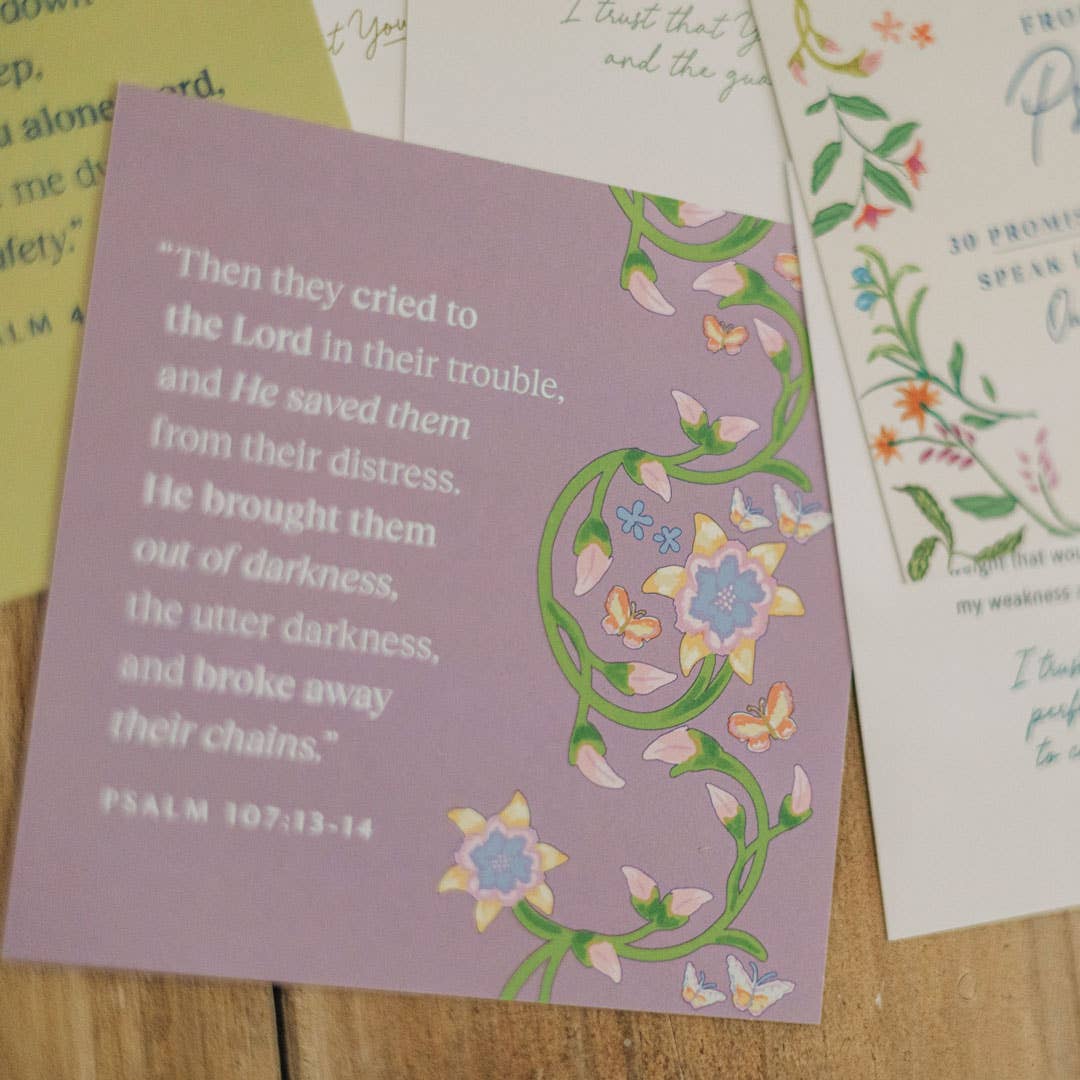 down
ep,
u alone
ord,
me
afety."
ALM 4
t You
I trust that
and the
FRO
Ps
30 PROMIS
SPEAK
"Then they cried to
the Lord in their trouble,
and He saved them
from their distress.
He brought them
out of darkness,
the utter darkness,
and broke away
their chains."
PSALM 107:13-14
that wou
my weakness
I trus
perf
to c